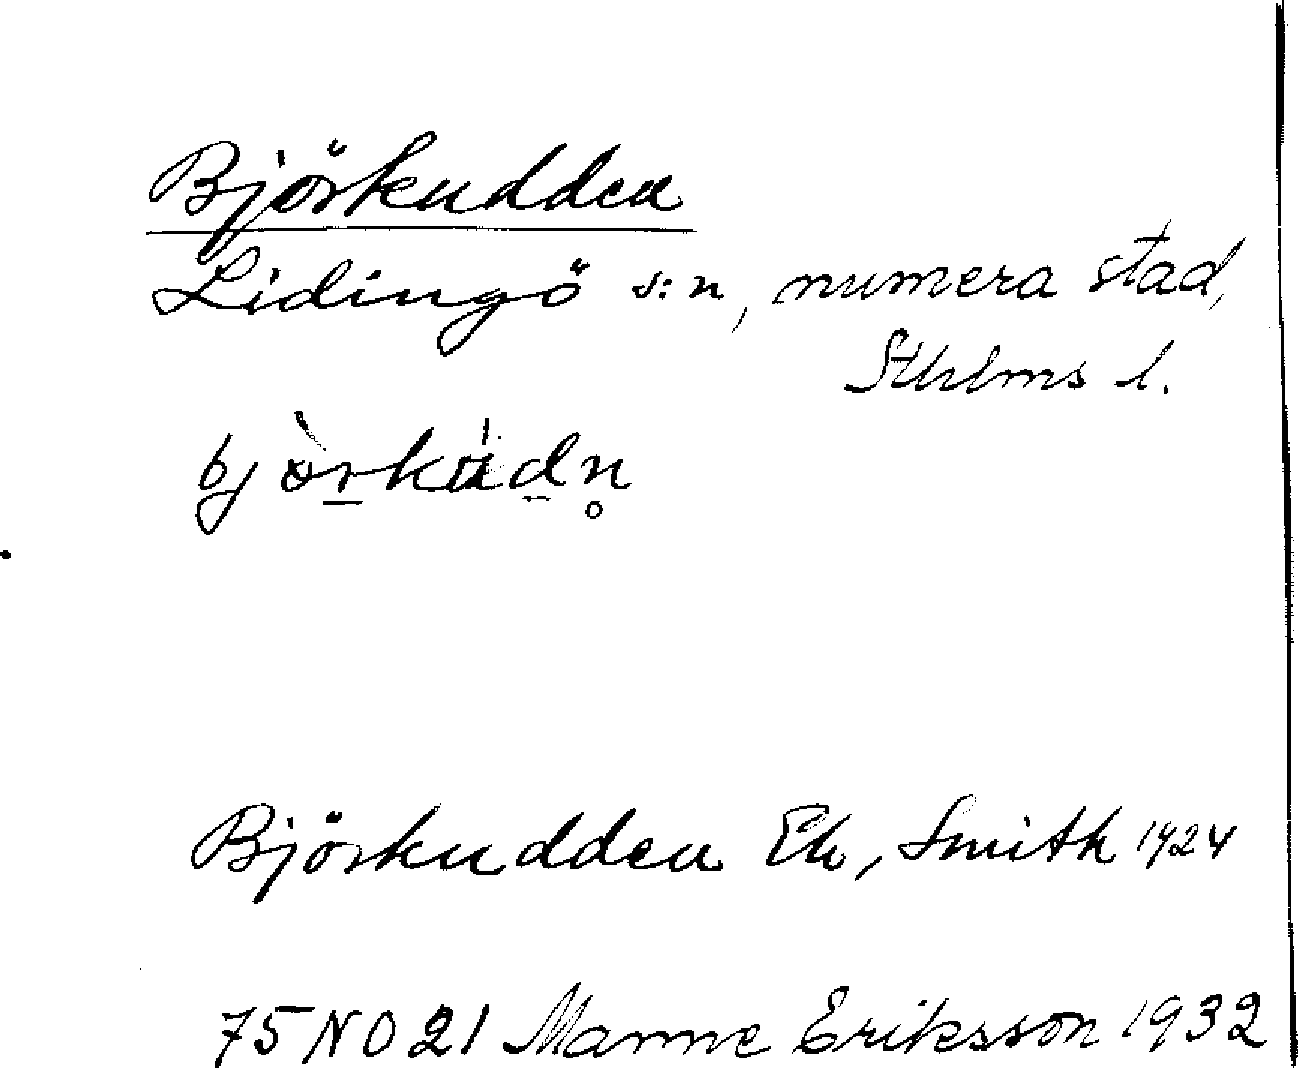 Björkudden
Lidingö s:n, numera stad,
Sthlms l.
Björkudden Ek, Smith 1924
75 NO 21 Manne Eriksson 1932